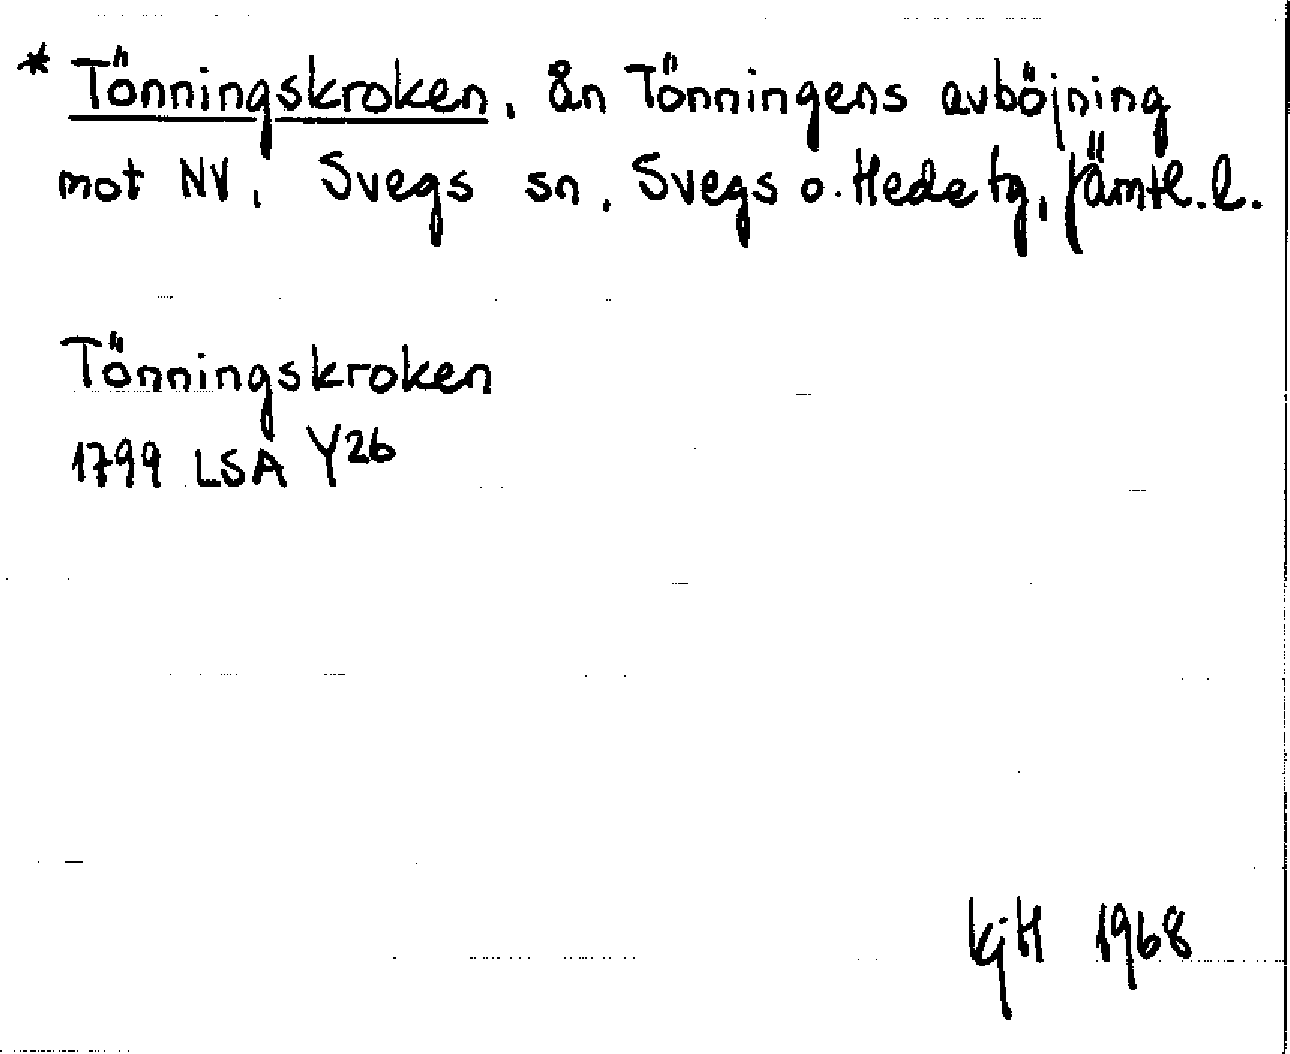 * Tönningskroken, ån Tönningens avböjning
mot NV, Svegs sn, Svegs o. Hede tg, Jämtl. l.
Tönningskroken
1799 LSA Y26
KjH 1968